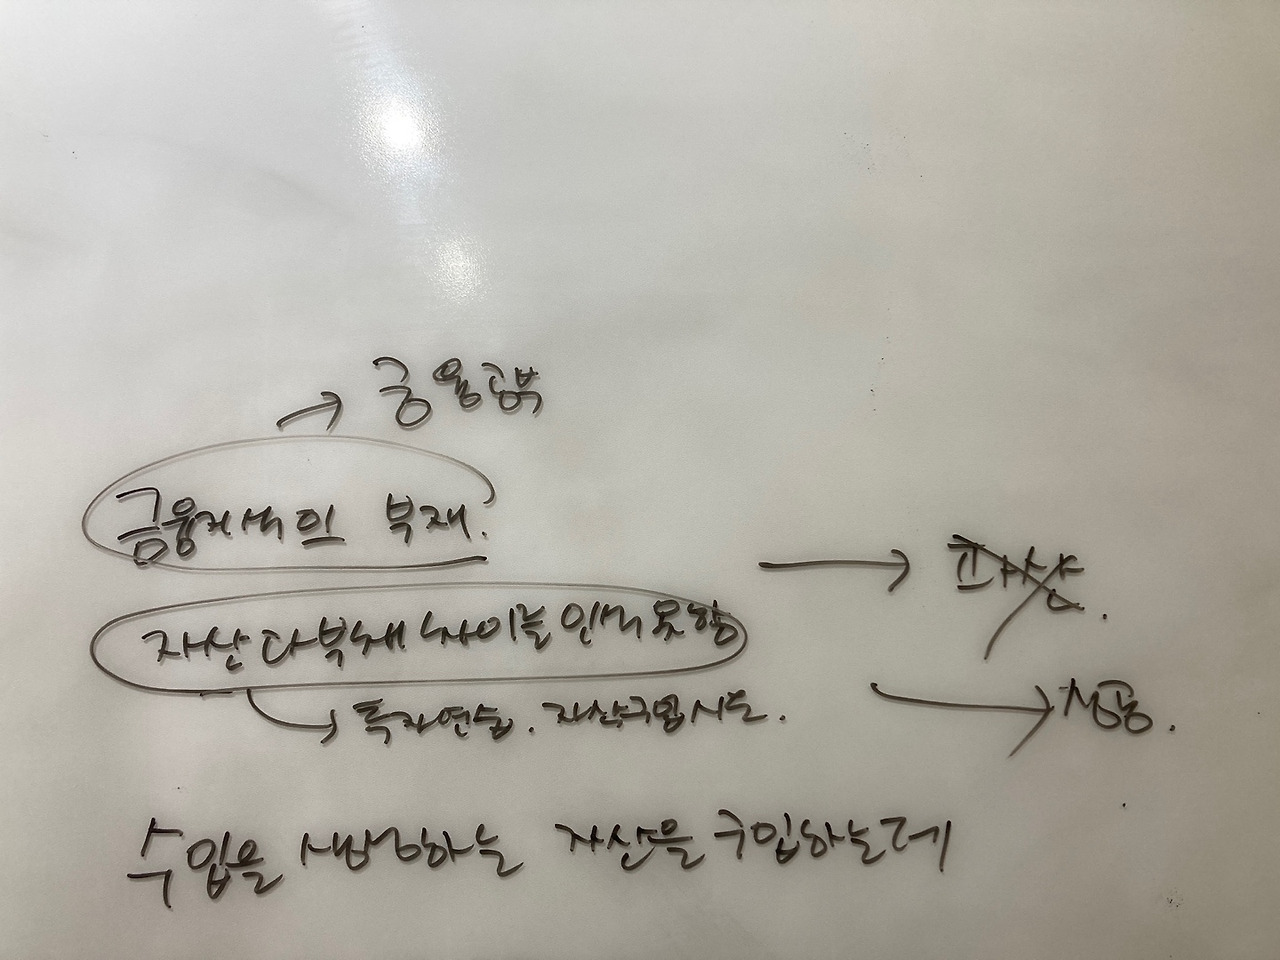 → 금융공부
금융지식의 부재.
→ 파산.
자산과 부채 차이를 인식 못함
→ 투자연습. 자산구입 시도.
→ 성공.
수입을 생성하는 자산을 구입하는데